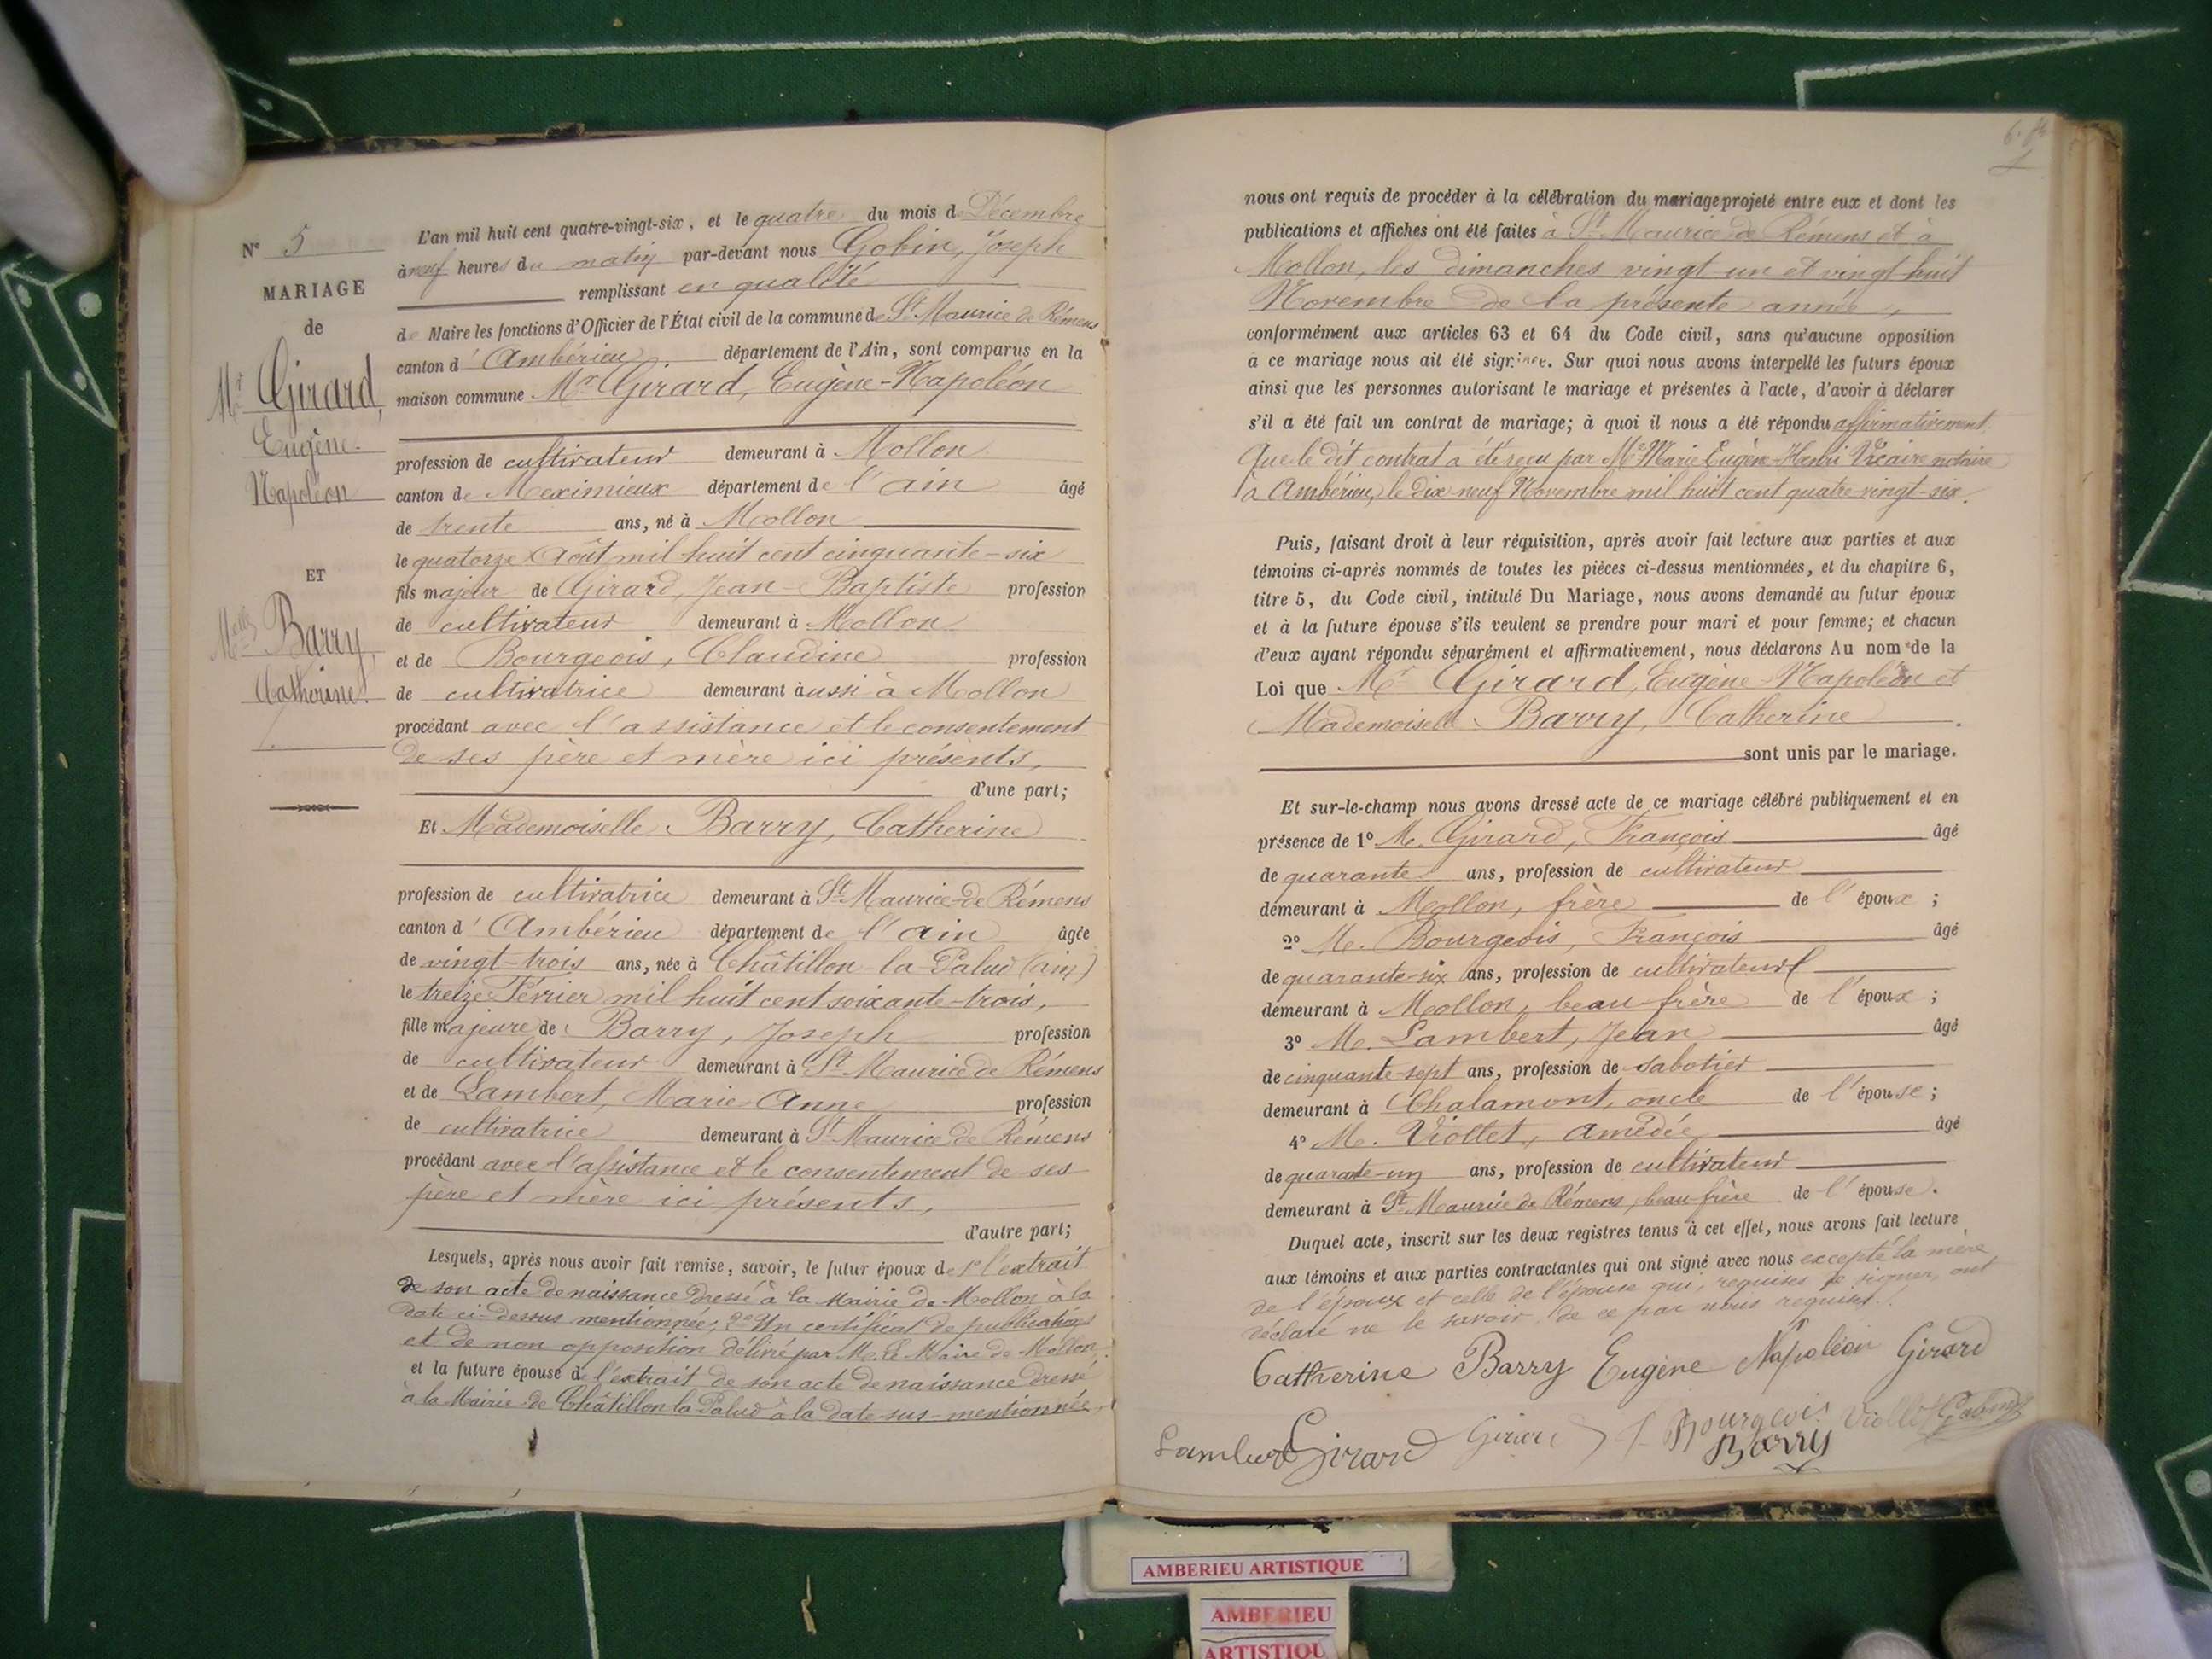 N° 5
MARIAGE
de
Mr Girard,
Eugène-
Napoléon
ET
Melle Barry,
Catherine.
L'an mil huit cent quatre-vingt-six, et le quatre du mois de Décembre
à neuf heures du matin par-devant nous Gobin, Joseph
remplissant en qualité
de Maire les fonctions d'Officier de l'État civil de la commune de St Maurice de Rémens
canton d' Ambérieu département de l'Ain, sont comparus en la
maison commune Mr Girard, Eugène-Napoléon
profession de cultivateur demeurant à Mollon
canton de Meximieux département de l'ain âgé
de trente ans, né à Mollon
le quatorze Août mil huit cent cinquante-six
fils majeur de Girard, Jean-Baptiste profession
de cultivateur demeurant à Mollon
et de Bourgeois, Claudine profession
de cultivatrice demeurant aussi à Mollon
procédant avec l'assistance et le consentement
de ses père et mère ici présents,
d'une part;
Et Mademoiselle Barry, Catherine
profession de cultivatrice demeurant à St Maurice-de Rémens
canton d' Ambérieu département de l'ain âgée
de vingt-trois ans, née à Châtillon-la-Palud (ain)
le treize Février mil huit cent soixante-trois,
fille majeure de Barry, Joseph profession
de cultivateur demeurant à St Maurice de Rémens
et de Lambert, Marie-Anne profession
de cultivatrice demeurant à St Maurice de Rémens
procédant avec l'assistance et le consentement de ses
père et mère ici présents,
d'autre part;
Lesquels, après nous avoir fait remise, savoir, le futur époux de 1° l'extrait
de son acte de naissance dressé à la Mairie de Mollon à la
date ci-dessus mentionnée; 2° Un certificat de publications
et de non opposition délivré par M. Le Maire de Mollon,
et la future épouse de l'extrait de son acte de naissance dressé
à la Mairie de Châtillon la Palud à la date sus-mentionnée
nous ont requis de procéder à la célébration du mariage projeté entre eux et dont les
publications et affiches ont été faites à St Maurice de Rémens et à
Mollon, les dimanches vingt-un et vingt huit
Novembre de la présente année,
conformément aux articles 63 et 64 du Code civil, sans qu'aucune opposition
à ce mariage nous ait été signifiée. Sur quoi nous avons interpellé les futurs époux
ainsi que les personnes autorisant le mariage et présentes à l'acte, d'avoir à déclarer
s'il a été fait un contrat de mariage; à quoi il nous a été répondu affirmativement
Que le dit contrat a été reçu par Me Marie Eugène-Henri Vicaire notaire
à Ambérieu, le dix-neuf Novembre mil huit cent quatre-vingt-six.
Puis, faisant droit à leur réquisition, après avoir fait lecture aux parties et aux
témoins ci-après nommés de toutes les pièces ci-dessus mentionnées, et du chapitre 6,
titre 5, du Code civil, intitulé Du Mariage, nous avons demandé au futur époux
et à la future épouse s'ils veulent se prendre pour mari et pour femme; et chacun
d'eux ayant répondu séparément et affirmativement, nous déclarons Au nom de la
Loi que Mr Girard, Eugène-Napoléon et
Mademoiselle Barry, Catherine
sont unis par le mariage.
Et sur-le-champ nous avons dressé acte de ce mariage célébré publiquement et en
présence de 1° M. Girard, François âgé
de quarante ans, profession de cultivateur
demeurant à Mollon, frère de l'époux;
2° M. Bourgeois, François âgé
de quarante-six ans, profession de cultivateur
demeurant à Mollon, beau-frère de l'époux;
3° M. Lambert, Jean âgé
de cinquante-sept ans, profession de sabotier
demeurant à Chalamont, oncle de l'épouse;
4° M. Viollet, Amédée âgé
de quarante-un ans, profession de cultivateur
demeurant à St Maurice de Rémens, beau-frère de l'épouse.
Duquel acte, inscrit sur les deux registres tenus à cet effet, nous avons fait lecture
aux témoins et aux parties contractantes qui ont signé avec nous excepté la mère
de l'époux et celle de l'épouse qui, requises de signer, ont
déclaré ne le savoir, de ce par nous requises.
Catherine Barry Eugène Napoléon Girard
Lambert Girard Girard f Bourgeois Viollet Gobin
Barry
AMBERIEU ARTISTIQUE
AMBERIEU
ARTISTIQU